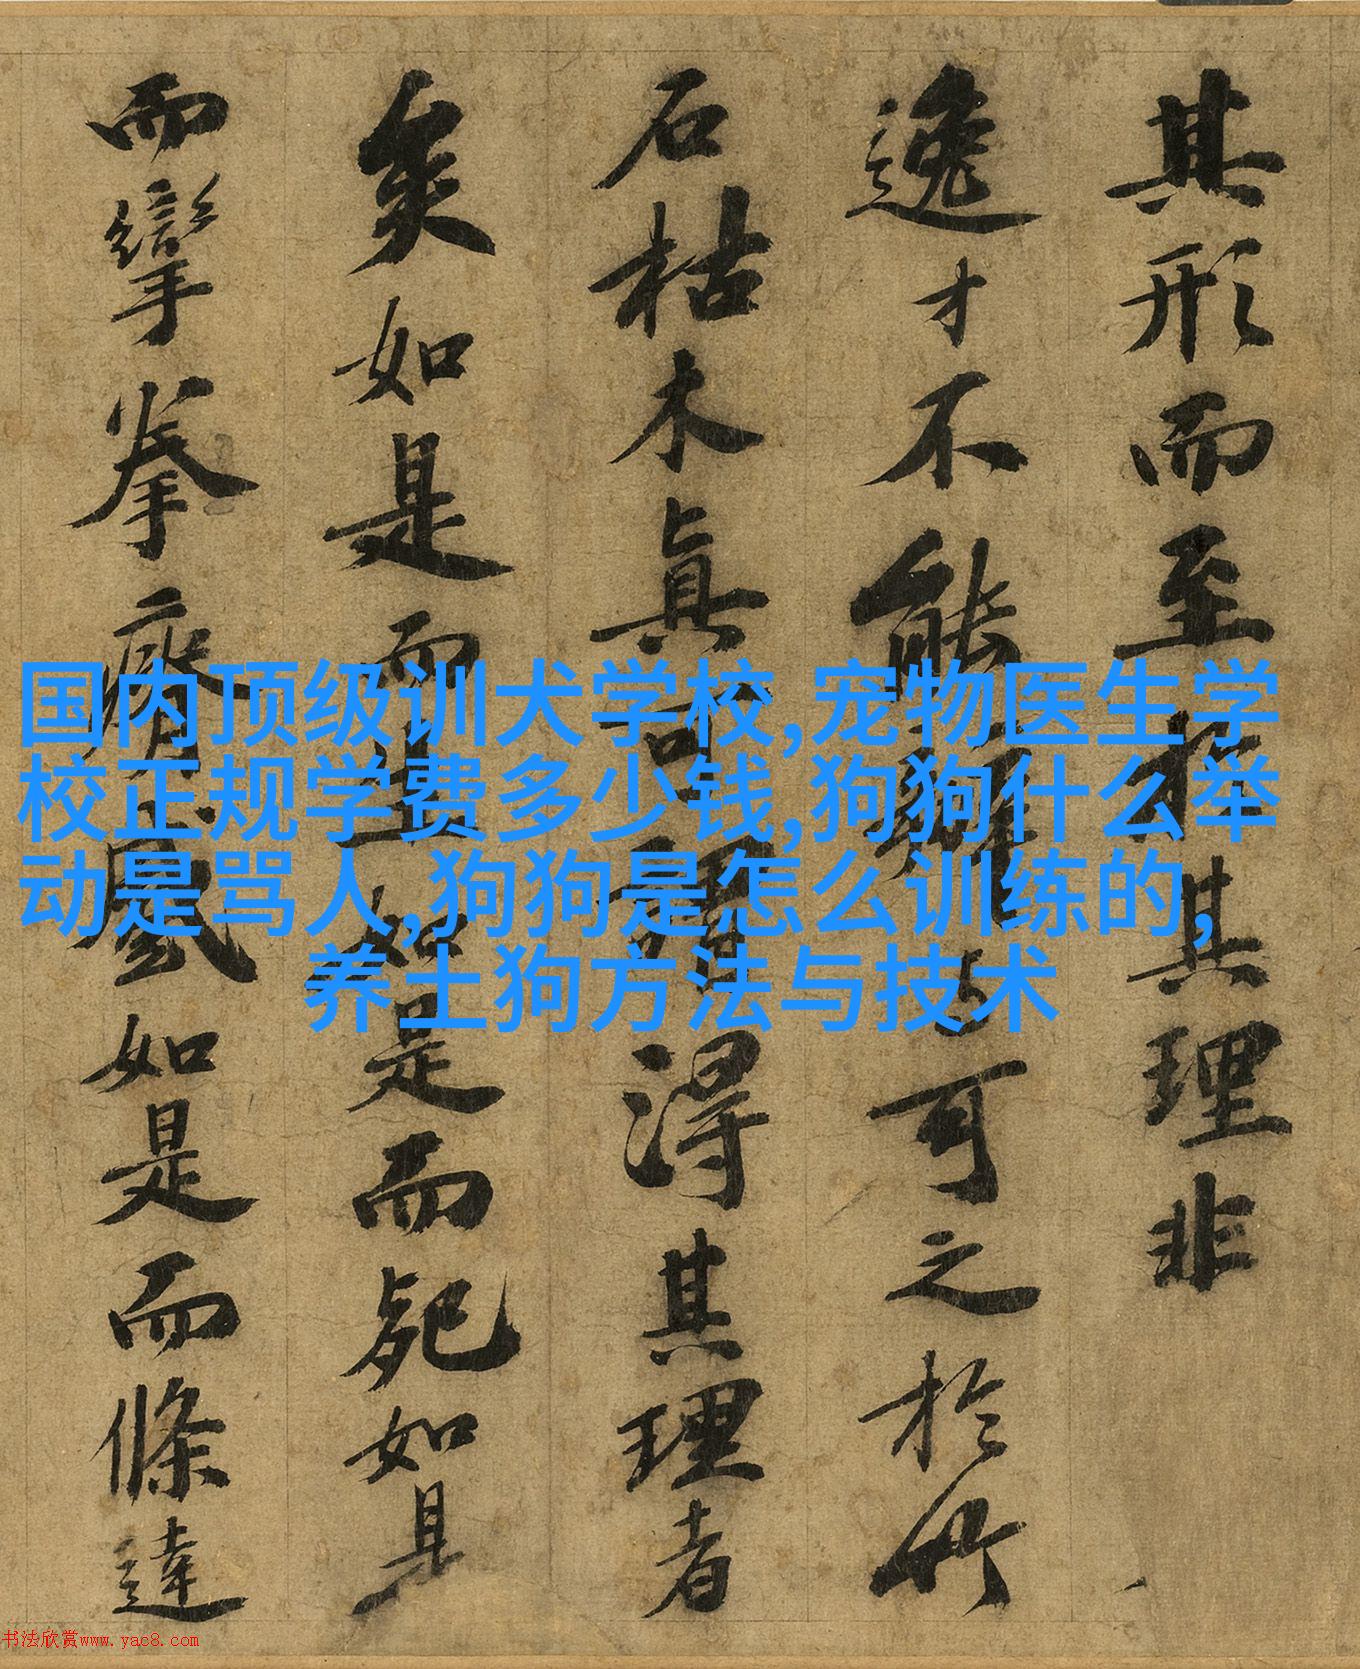 其形而至其理非
逸才不能可之於竹
石枯木真可謂得其理者
矣如是而生如是而死如是
而攣拳瘠蹙如是而條達
国内顶级训犬学校,宠物医生学
校正规学费多少钱,狗狗什么举
动是骂人,狗狗是怎么训练的,
养土狗方法与技术
书法欣赏www.yac8.com